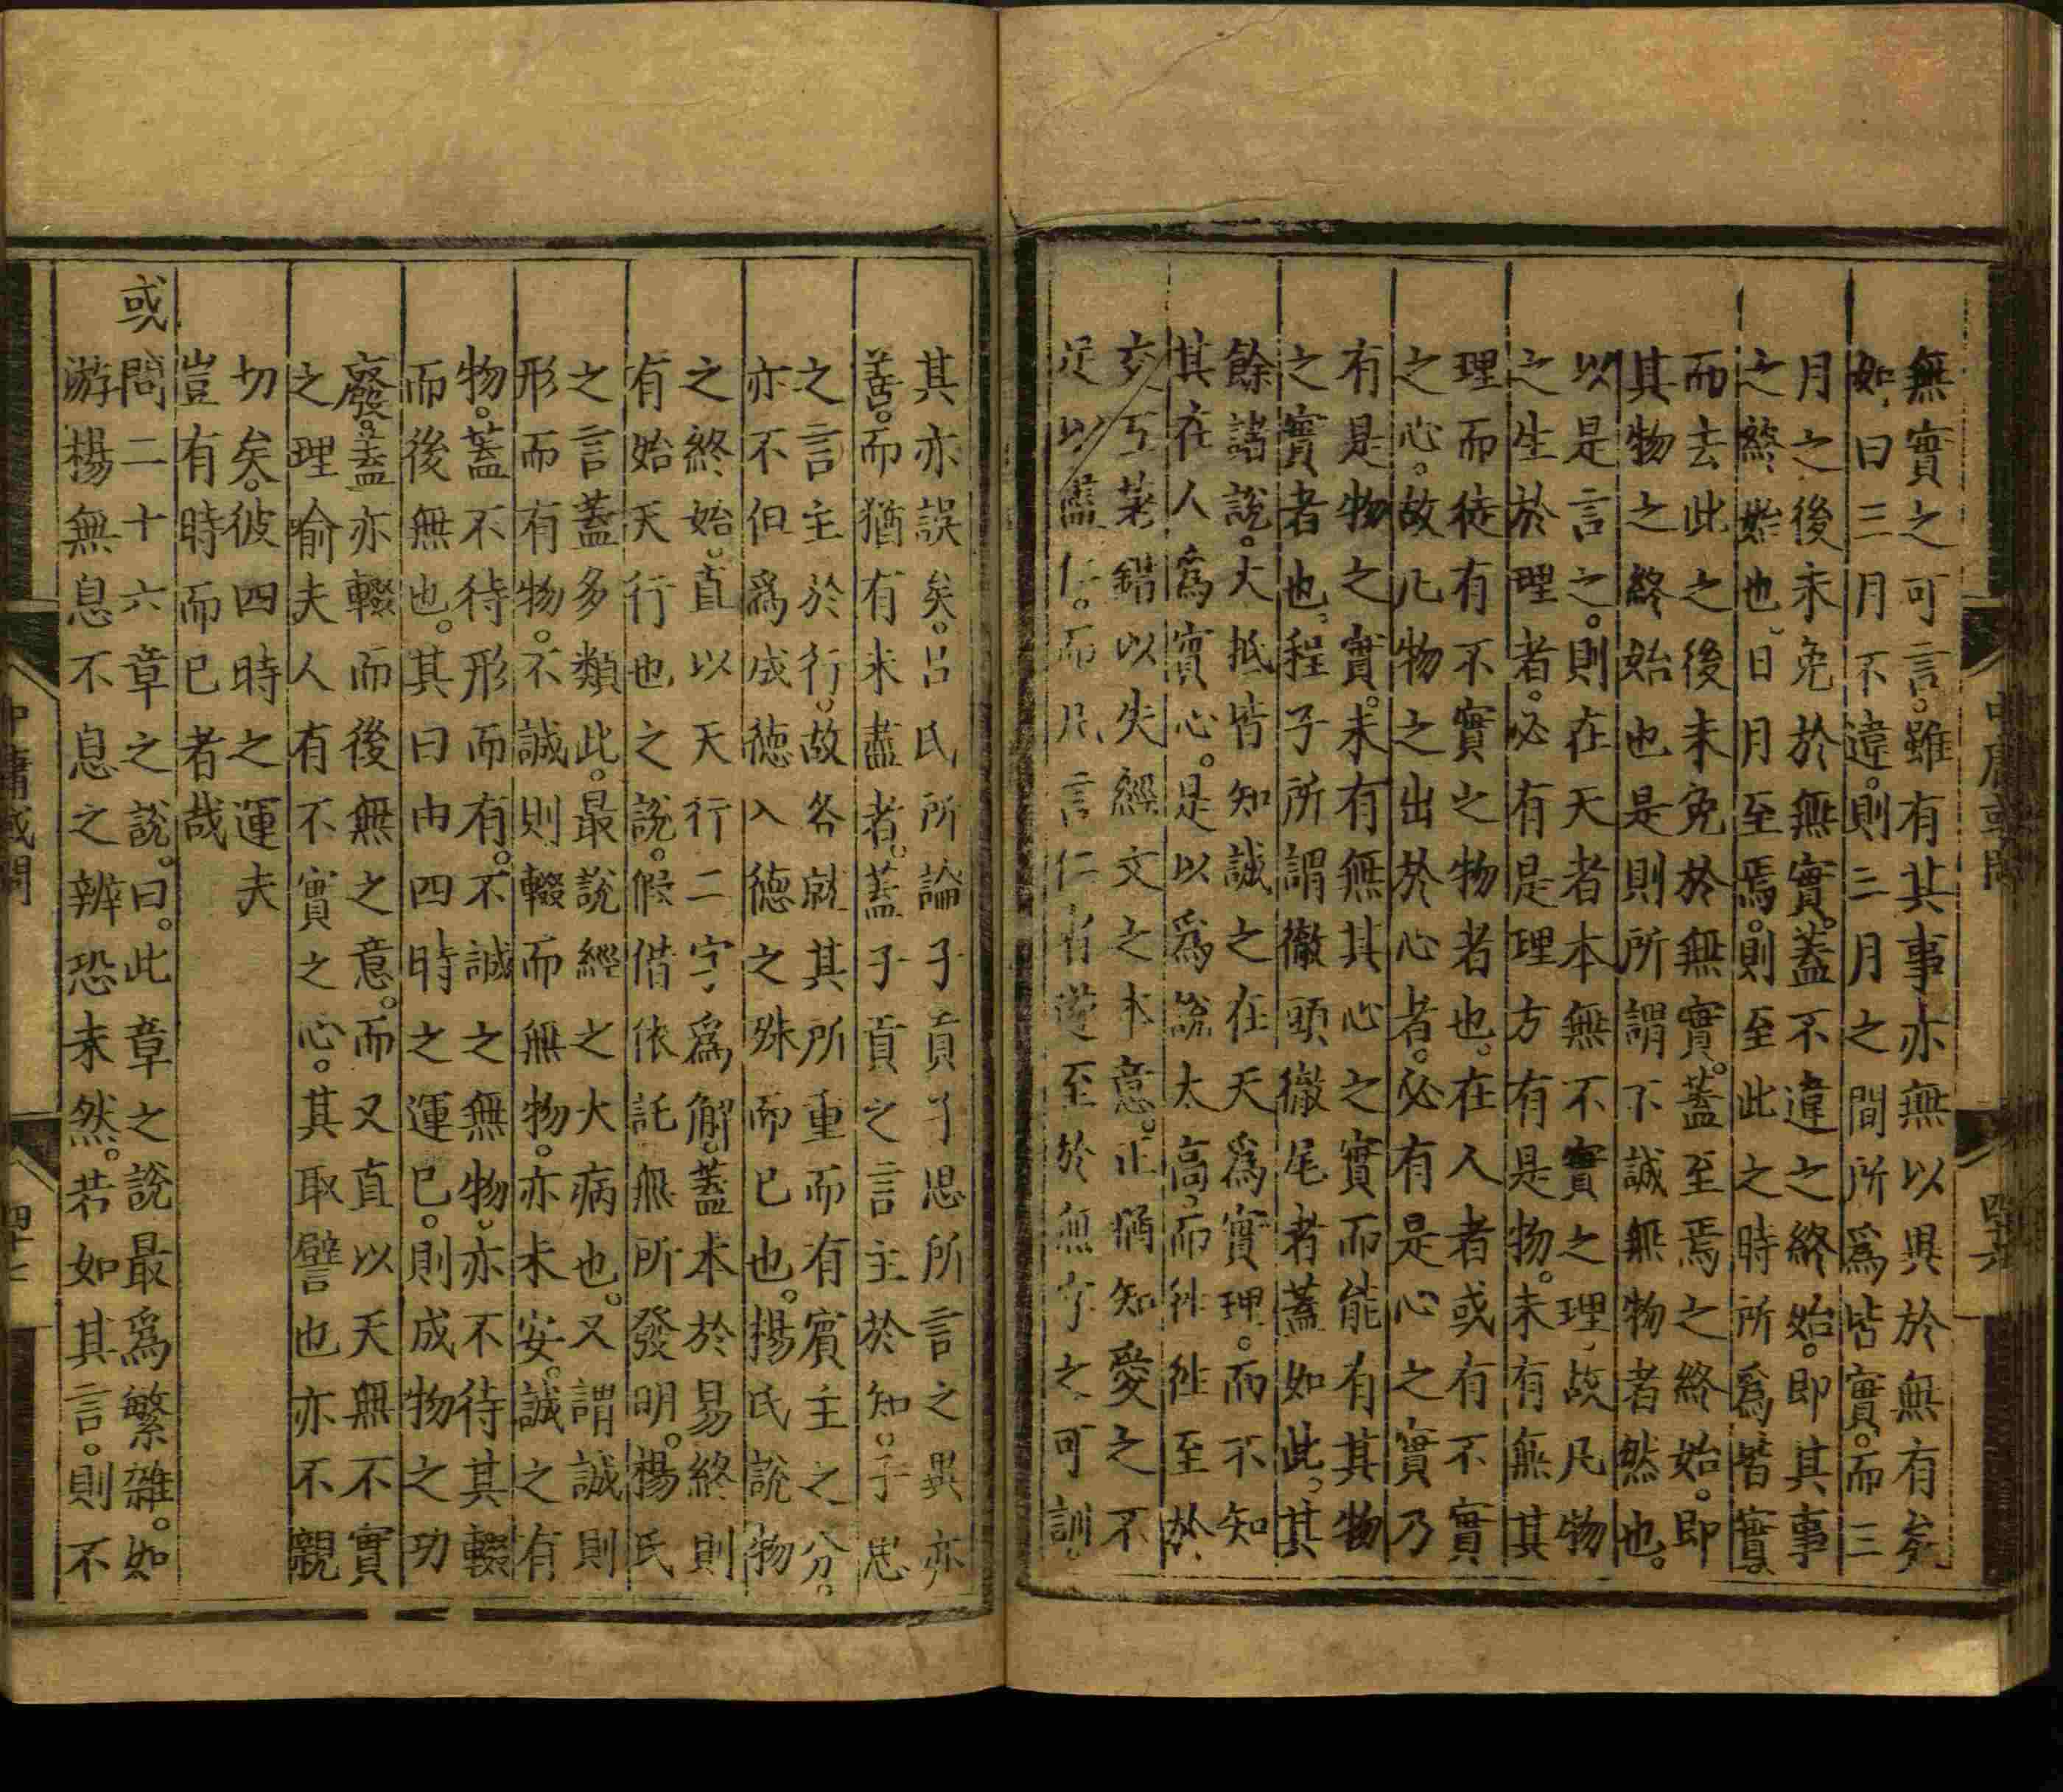 無實之可言。雖有其事亦無以異於無有矣
如曰三月不違。則三月之間所爲皆實。而三
月之後未免於無實。蓋不違之終始。即其事
之終始也日月至焉。則至此之時所爲皆實。
而去此之後未免於無實。蓋至焉之終始。即
其物之終始也是則所謂不誠無物者然也。
以是言之。則在天者本無不實之理故凡物
之生於理者。必有是理方有是物。未有無其
理而徒有不實之物者也。在人者或有不實
之心。故凡物之出於心者。必有是心之實乃
有是物之實。未有無其心之實而能有其物
之實者也。程子所謂徹頭徹尾者蓋如此。其
餘諸說。大抵皆知誠之在天爲實理。而不知
其在人爲實心。是以爲說太高。而徃徃至於
交互差錯以失經文之本意。正猶知愛之不
足以盡仁。而凡言仁者遂至於無字之可訓。
其亦誤矣。呂氏所論子貢子思所言之異亦
善。而猶有未盡者。蓋子貢之言主於知。子思
之言主於行。故各就其所重而有賓主之分。
亦不但爲成德入德之殊而已也。楊氏說物
之終始。直以天行二字爲解。蓋本於易終則
有始天行也之說。假借依託無所發明。楊氏
之言蓋多類此。最說經之大病也。又謂誠則
形而有物。不誠則輟而無物。亦未安。誠之有
物。蓋不待形而有。不誠之無物。亦不待其輟
而後無也。其曰由四時之運已。則成物之功
廢。蓋亦輟而後無之意。而又直以天無不實
之理喻夫人有不實之心。其取譬也亦不親
切矣。彼四時之運夫
豈有時而已者哉
或問二十六章之說。曰。此章之說最爲繁雜。如
游楊無息不息之辨恐未然。若如其言。則不
中庸或問
四十六
中庸或問
四十七